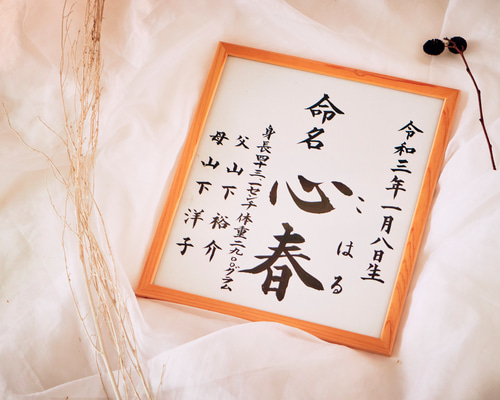 令和三年一月八日生
こ はる
命名
心春
身長 センチ 体重二九〇〇グラム
父 山下裕介
母 山下洋子